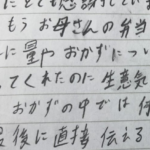 にとても感謝してい
もうお母さんの弁当
に量やおかずについ
てくれたのに生意気
おかずの中では何
最後に直接伝える